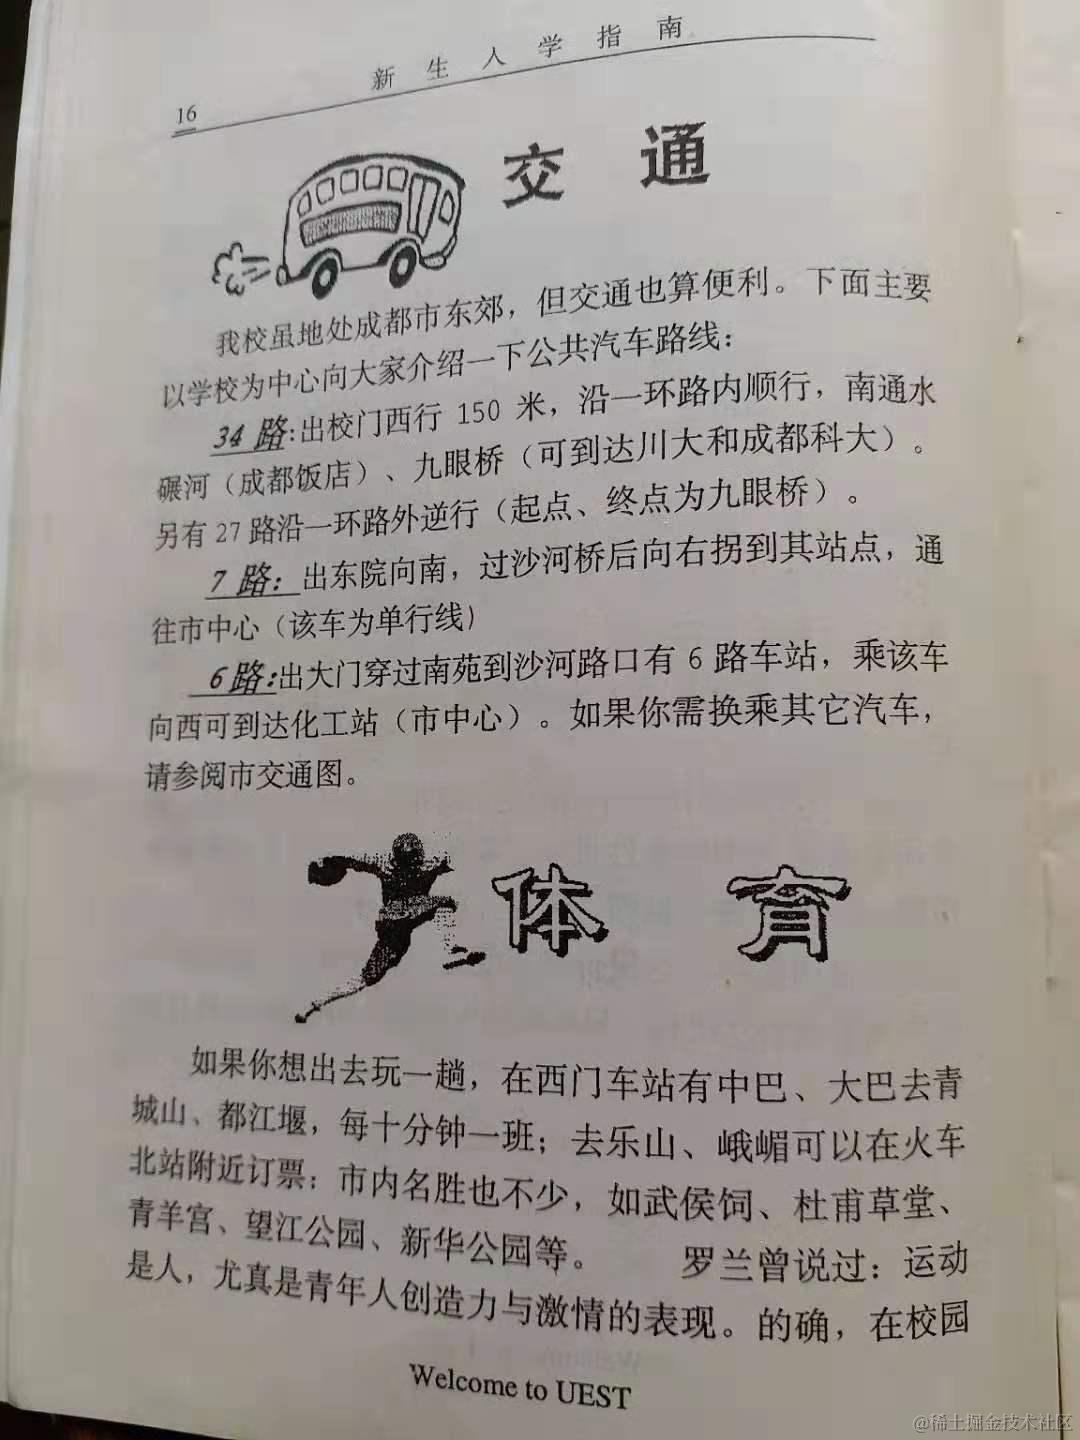 新生人学指南
16
交通
我校虽地处成都市东郊，但交通也算便利。下面主要
以学校为中心向大家介绍一下公共汽车路线：
34路:出校门西行 150 米，沿一环路内顺行，南通水
碾河（成都饭店）、九眼桥（可到达川大和成都科大）。
另有 27 路沿一环路外逆行（起点、终点为九眼桥）。
7路：出东院向南，过沙河桥后向右拐到其站点，通
往市中心（该车为单行线）
6路:出大门穿过南苑到沙河路口有 6 路车站，乘该车
向西可到达化工站（市中心）。如果你需换乘其它汽车，
请参阅市交通图。
体育
如果你想出去玩一趟，在西门车站有中巴、大巴去青
城山、都江堰，每十分钟一班；去乐山、峨嵋可以在火车
北站附近订票；市内名胜也不少，如武侯饲、杜甫草堂、
青羊宫、望江公园、新华公园等。 罗兰曾说过：运动
是人，尤真是青年人创造力与激情的表现。的确，在校园
Welcome to UEST
@稀土掘金技术社区